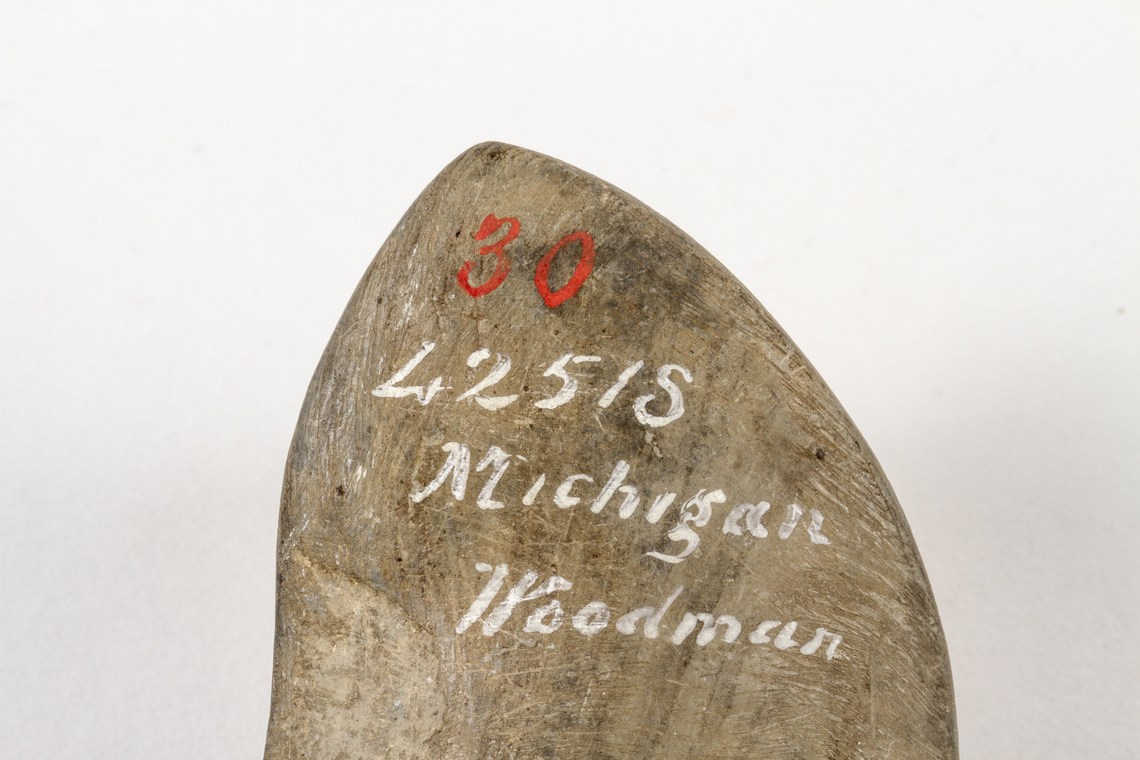 30
42518
Michigan
Woodman